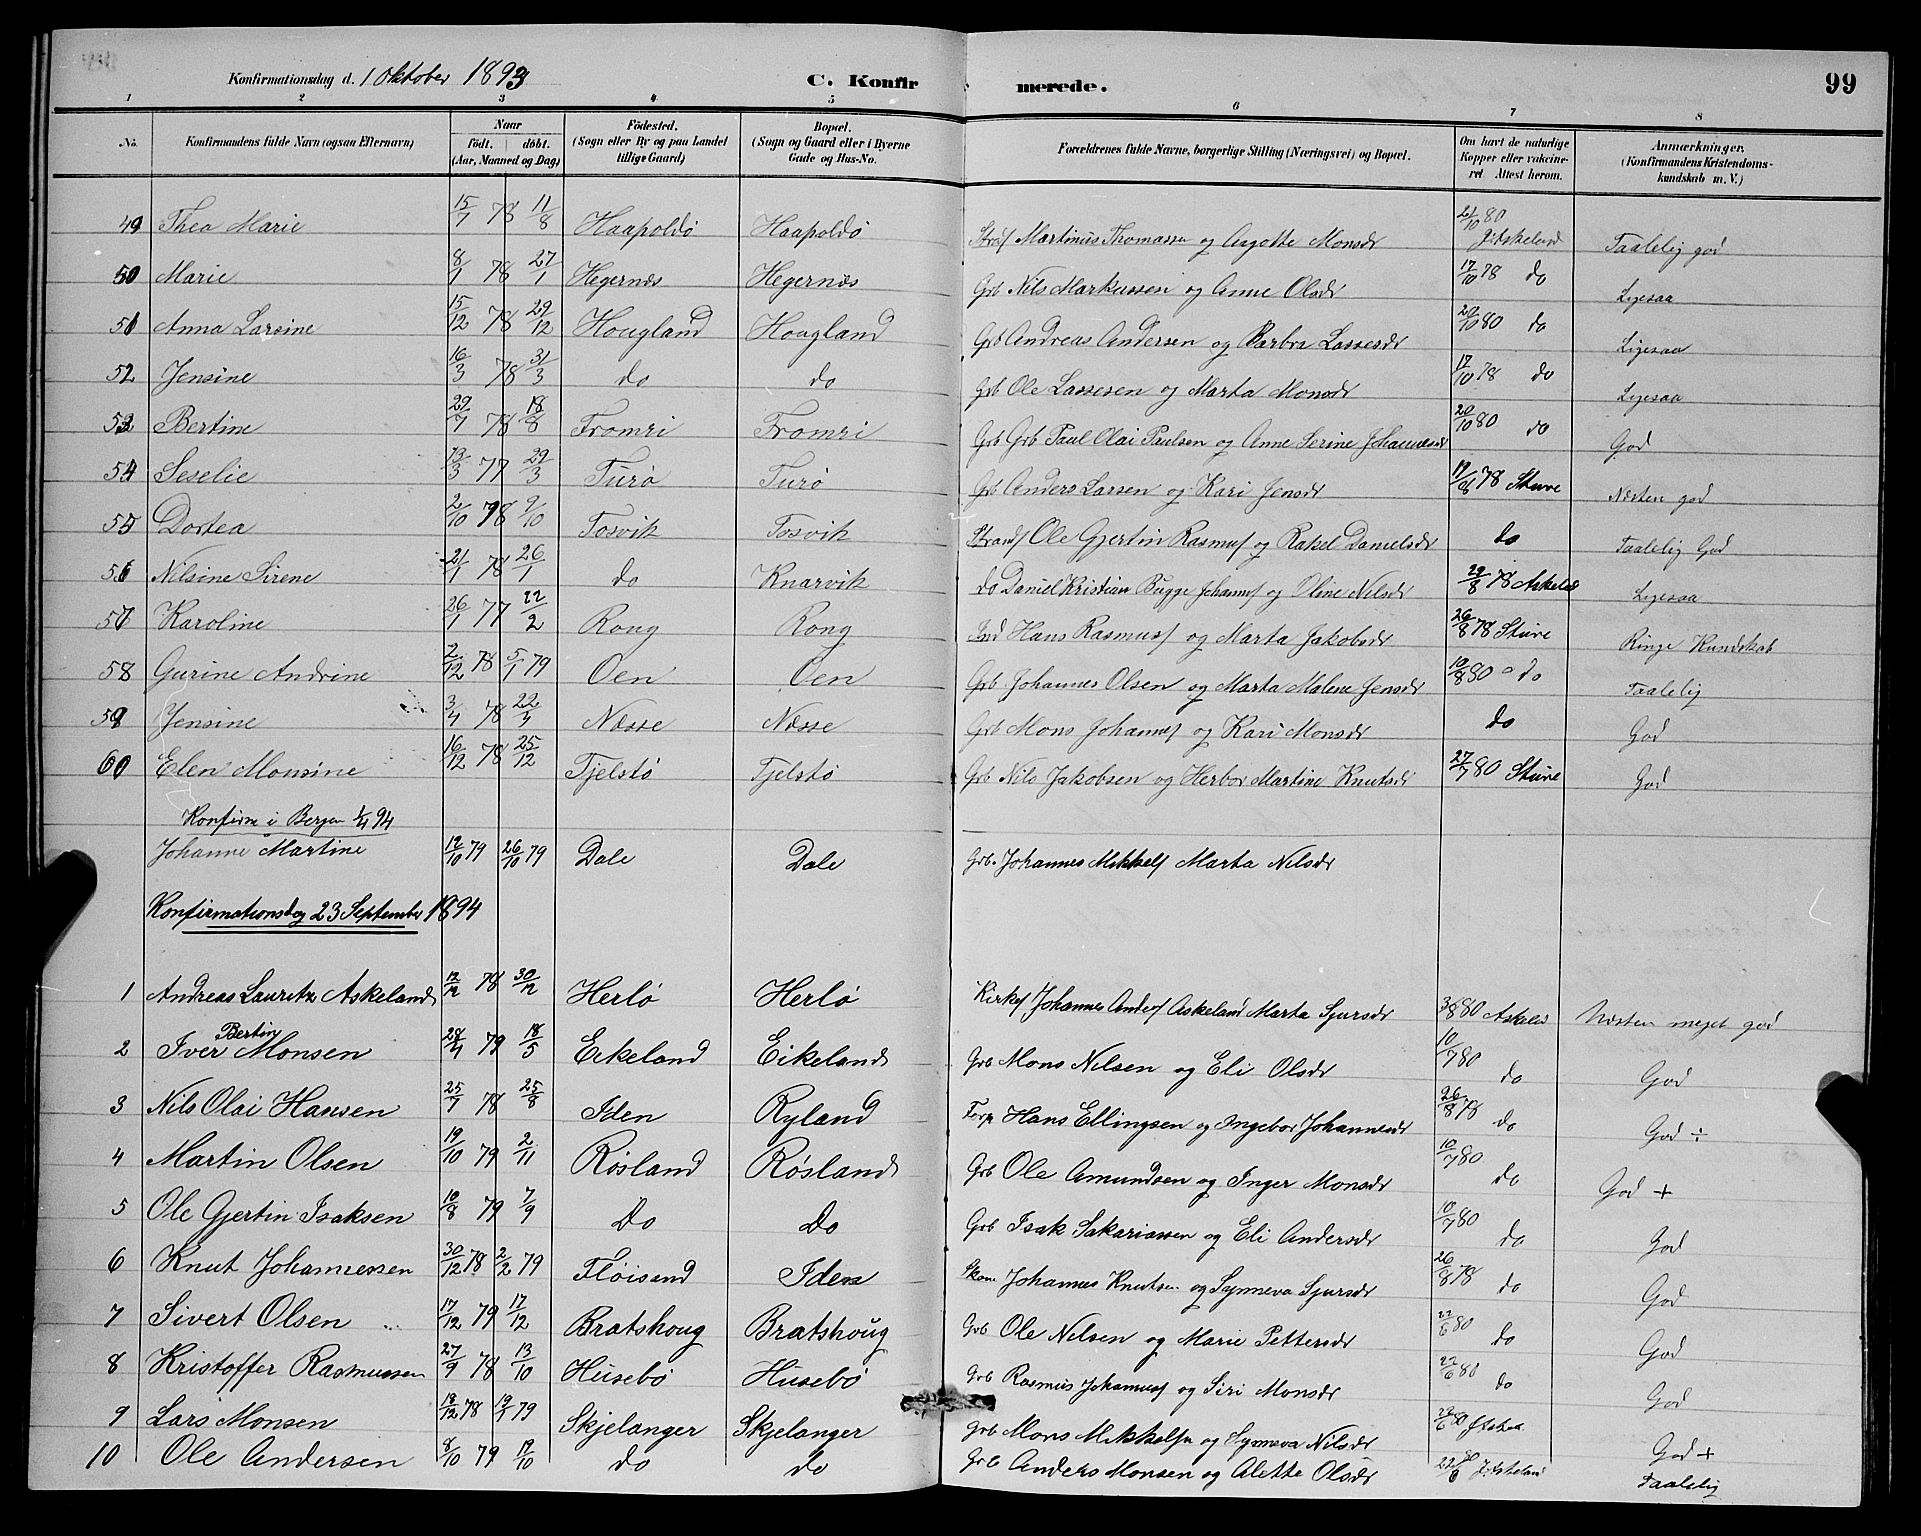 Konfirmationsdag d. 1 Oktober 1893 C. Konfir merede. 99
1 2 3 4 5 6 7 8
No. Konfirmandens fulde Navn (ogsaa Efternavn) Naar født. døbt. (Aar, Maaned og Dag) Födested. (Sogn eller By og paa Landet tillige Gaard) Bopæl. (Sogn og Gaard eller i Byerne Gade og Hus-No. Forældrenes fulde Navne, borgerlige Stilling (Næringsvei) og Bopæl. Om havt de naturlige Kopper eller vakcineret Attest herom. Anmærkninger. (Konfirmandens Kristendomskundskab m. V.)
49 Thea Marie 15/7 78 11/8 Haapoldø Haapoldø Martinus Thomassen og Aagotte Monsdr 21/10 80 Taalelig god
50 Marie 8/1 78 27/1 Hegernæs Hegernæs Grb Nils Markussen og Anne Olsdr 17/10 78 do Ligesaa
51 Anna Larsine 15/12 78 29/12 Hougland Hougland Grb Andreas Andersen og Barbra Lassesdr 80 do Ligesaa
52 Jensine 16/3 78 31/3 do do Grb Ole Lassesen og Marta Monsdr 17/10 78 do Ligesaa
53 Bertine 29/7 78 18/8 Fromri Fromri Grb Grb Paul Olai Paulsen og Anne Serine Johannesdr 20/10 80 do God
54 Seselie 13/3 77 29/3 Turø Turø Grb Anders Larsen og Kari Jensdr 78 Sture Næsten god
55 Dortea 2/10 78 9/10 Tosvik Tosvik Strands Ole Gjertin Rasmus og Rakel Danielsdr do Taalelig God
56 Nilsine Sirene 21/1 78 26/1 do Knarvik do Daniel Kristian Bugge Johannes og Oline Nilsdr 29/8 78 Askeland Ligesaa
57 Karoline 26/1 77 22/2 Rong Rong Ind Hans Rasmus og Marta Jakobsdr 26/8 78 Sture Ringe Kundskab
58 Gurine Andrine 2/12 78 5/1 79 Oen Oen Grb. Johannes Olsen og Marta Malene Jensdr 10/8 80 do Taalelig
59 Jensine 3/4 78 22/4 Næsse Næsse Grb Mons Johannes og Kari Monsdr do God
60 Elen Monsine 16/12 78 25/12 Tjelstø Tjelstø Grb Nils Jakobsen og Herbor Martine Knutsdr 27/7 80 Sture God
Konfirm i Bergen 1/4 94
Johanne Martine 12/10 79 26/10 79 Dale Dale Grb. Johannes Mikkels Marta Nilsdr
Konfirmationsdag 23 September 1894
1 Andreas Lauritz Askeland 12/12 78 30/12 Herlø Herlø Kirkes Johannes Anders Askeland Marta Sjursdr 3/8 80 Askeld Næsten meget god
2 Iver Bertin Monsen 28/4 79 18/5 Eekeland Eikeland Grb Mons Nilsen og Eli Olsdr 10/7 80 do God
3 Nils Olai Hansen 25/7 78 25/8 Iden Ryland Forp Hans Ellingsen og Ingebor Johannesdr 26/8 78 do God ÷
4 Martin Olsen 19/10 79 2/11 Røsland Røsland Grb Ole Amundsen og Inger Monsdr 10/7 80 do God +
5 Ole Gjertin Isaksen 10/8 79 7/9 Do Do Grb Isak Sakariassen og Eli Andersdr 10/7 80 do God
6 Knut Johannessen 30/12 78 2/2 79 Fløisand Iden Skom Johannes Knutsen og Synneva Sjursdr 26/8 78 do God
7 Sivert Olsen 17/12 79 17/12 Bratshoug Bratshoug Grb Ole Nilsen og Marie Pettersdr 22/6 80 do God
8 Kristoffer Rasmussen 27/9 78 13/10 Husebø Husebø Grb Rasmus Johannes og Siri Monsdr 22/6 80 do God
9 Lars Monsen 18/12 78 79 Skjelanger Skjelanger Grb Mons Mikkelsen og Synneva Nilsdr 22/6 80 God +
10 Ole Andersen 8/10 79 19/10 do do Grb Anders Monsen og Alette Olsdr 22/6 80 Taalelig